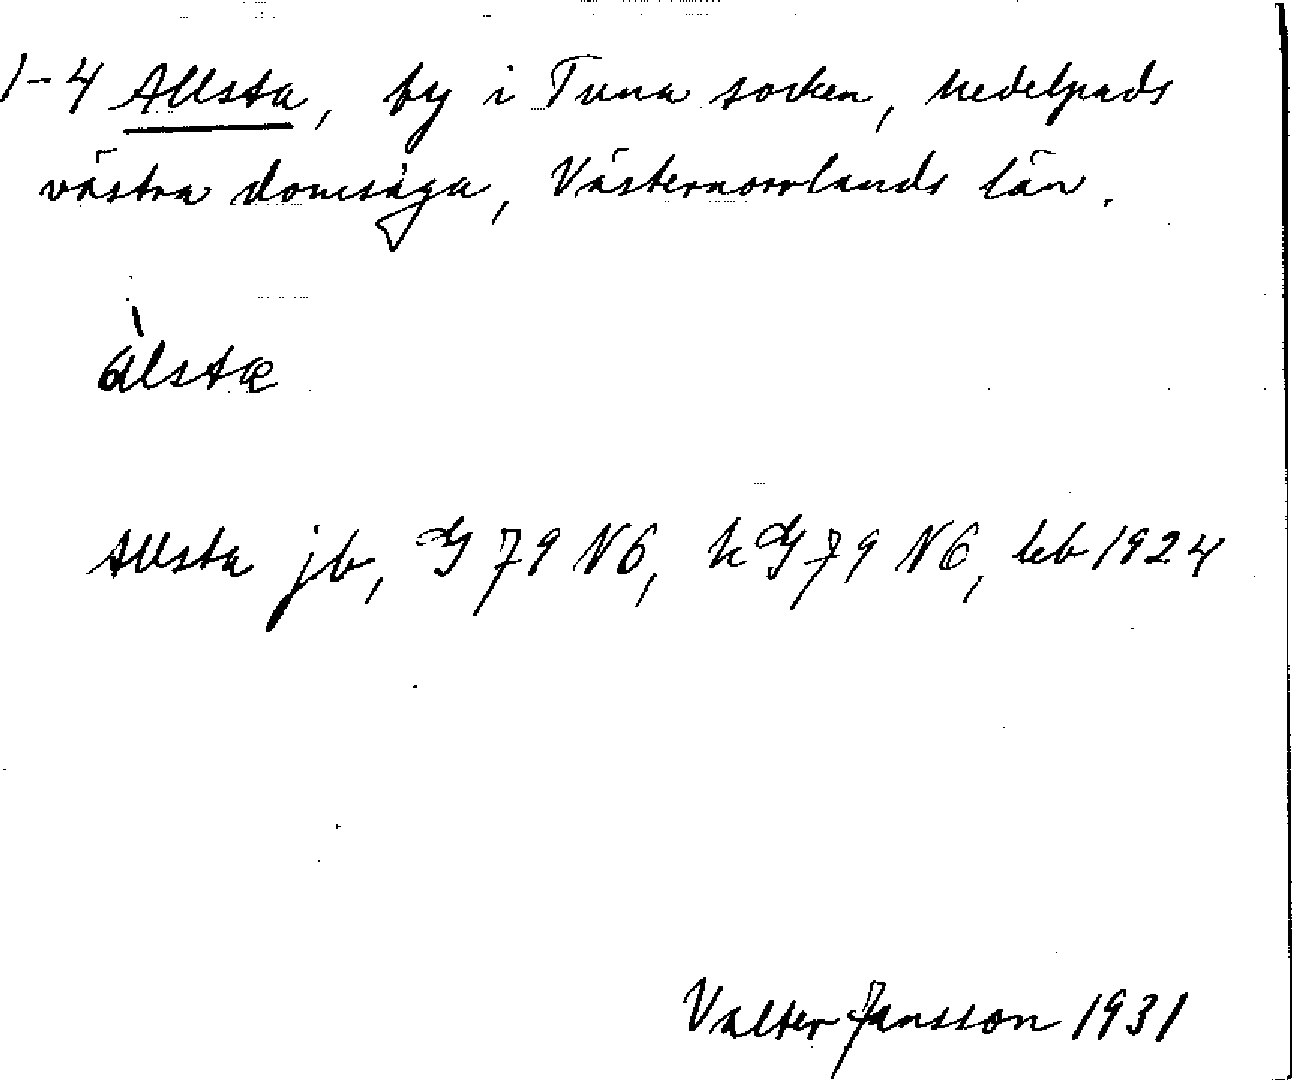 1-4 Allsta, by i Tuna socken, Medelpads
västra domsaga, Västernorrlands län.
àlstæ
Allsta jb, G 79 N6, h G 79 N6, leb 1924
Valter Jansson 1931